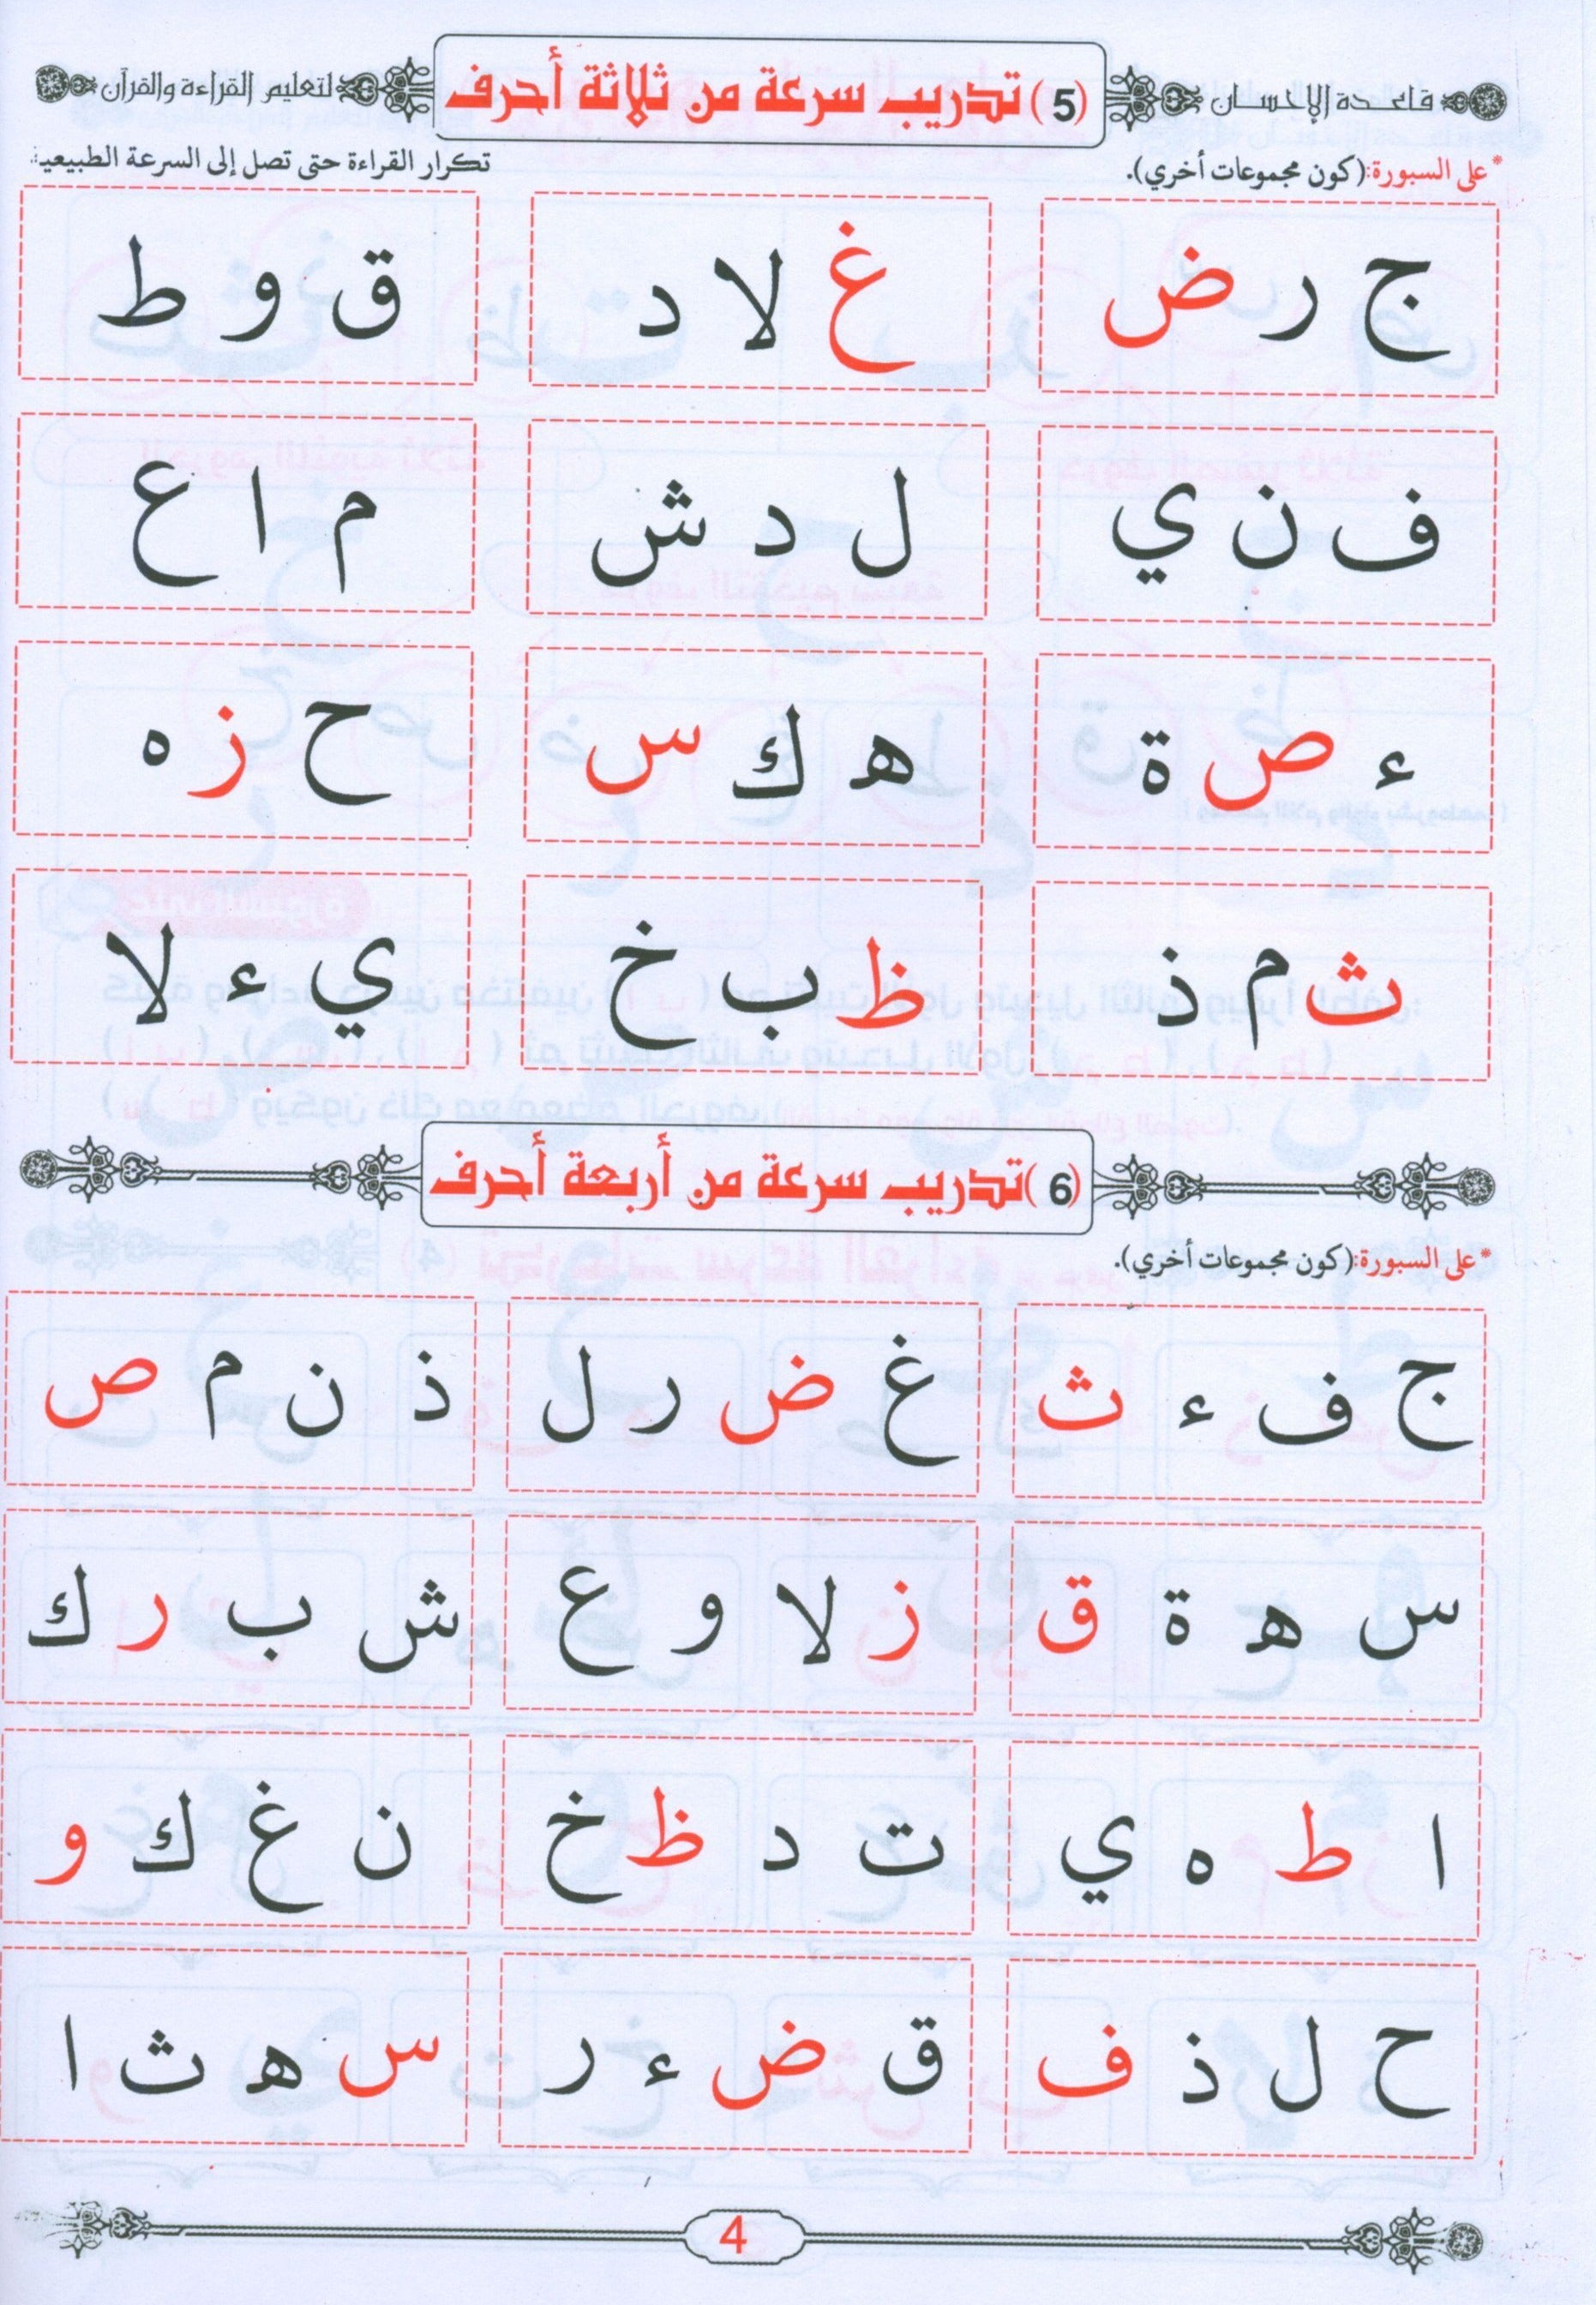 قاعدة الإحسان (5) تدريب سرعة من ثلاثة أحرف لتعليم القراءة والقرآن
* على السبورة:(كون مجموعات أخري). تكرار القراءة حتى تصل إلى السرعة الطبيعية.
ج ر ض غ لا د ق و ط
ف ن ي ل د ش م ا ع
ء ص ة ھ ك س ح ز ه
ث م ذ ظ ب خ ي ء لا
(6) تدريب سرعة من أربعة أحرف
* على السبورة:(كون مجموعات أخري).
ج ف ء ث غ ض ر ل ذ ن م ص
س ھ ة ق ز لا و ع ش ب ر ك
ا ط ه ي ت د ظ خ ن غ ك و
ح ل ذ ف ق ض ء ر س ھ ث ا
4